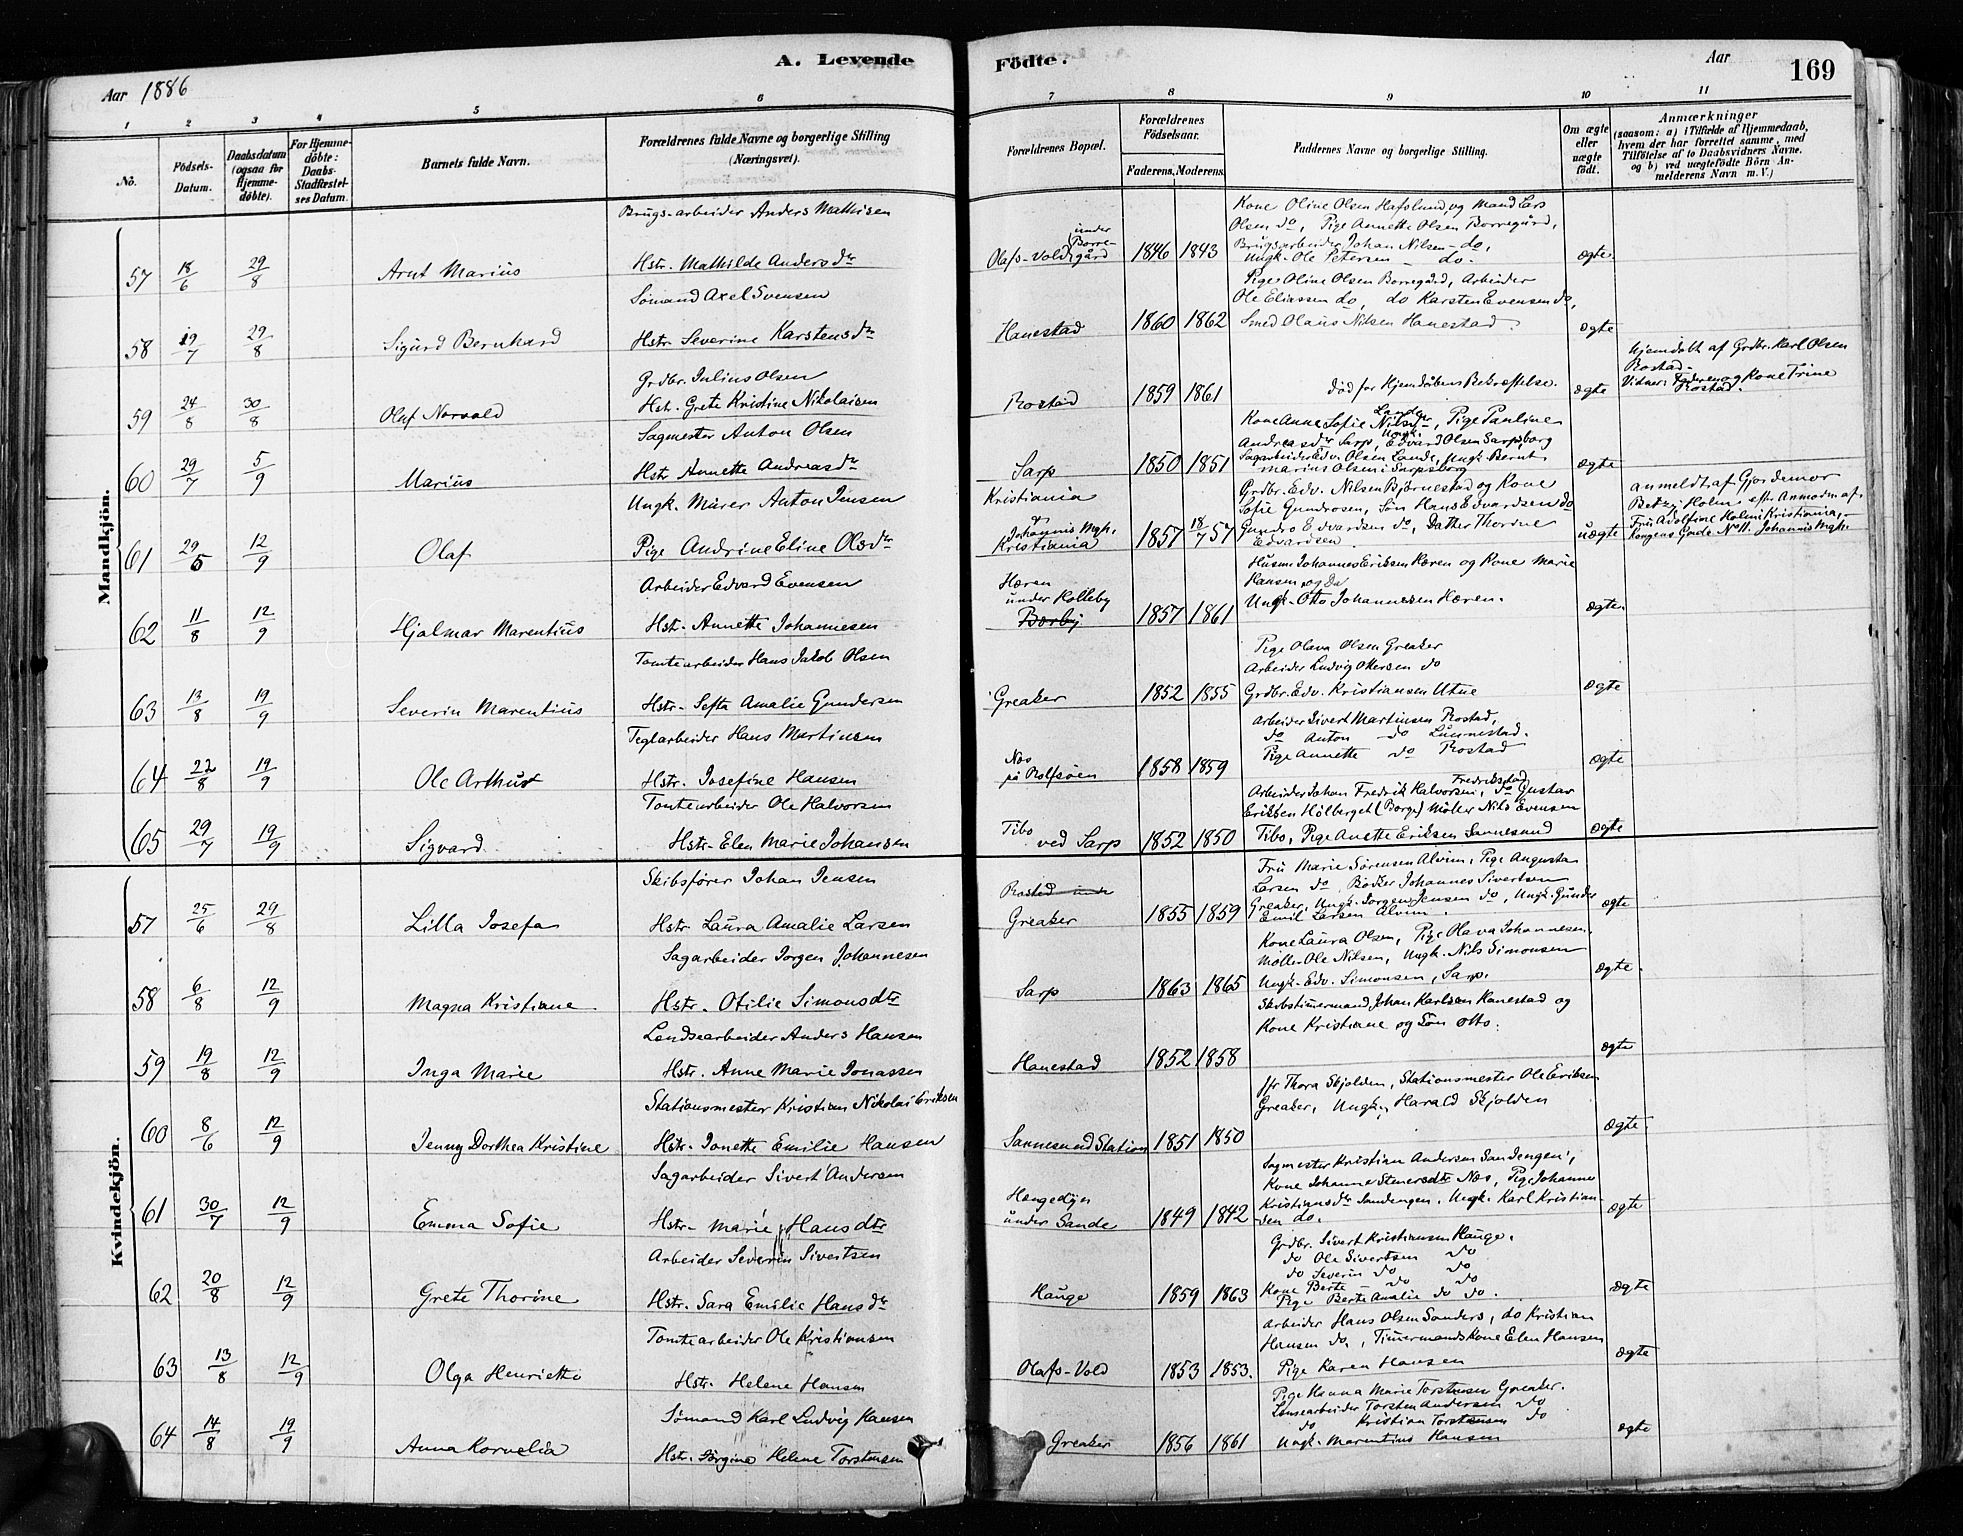 A. Levende Födte.
Aar 1886
Aar
169
1 2 3 4 5 6 7 8 9 10 11
No.
Födsels-Datum.
Daabsdatum (ogsaa for Hjemme-døbte).
For Hjemme-døbte: Daabs-Stadfæstelses Datum.
Barnets fulde Navn.
Forældrenes fulde Navne og borgerlige Stilling (Næringsvei).
Forældrenes Bopæl.
Forældrenes Födselsaar.
Faderens. Moderens.
Faddernes Navne og borgerlige Stilling.
Om ægte eller uægte födt.
Anmærkninger
(saasom: a) i Tilfælde af Hjemmedaab, hvem der har forrettet samme, med Tilföielse af to Daabsvidners Navne. og b) ved uægtefödte Börn Anmelderens Navn m. V.)
Mandkjön.
57 18/6 29/8 Arnt Marius
Brugs-arbeider Anders Mathisen
Hstr. Mathilde Andersdtr
Olafs-Vold under Borregård 1846 1843
Kone Oline Olsen Hafslund, og Mand Lars
Olsen do, Pige Annette Olsen Borregård,
Brugsarbeider Johan Nilsen - do,
Ungk. Ole Petersen - do.
ægte
58 19/7 29/8 Sigurd Bernhard
Sømand Axel Svensen
Hstr. Severine Karstensdtr
Hanestad 1860 1862
Pige Oline Olsen Borregård, Arbeider
Ole Eliassen do, do Karsten Evensen do,
Smed Olaus Nilsen Hanestad.
ægte
59 24/8 30/8 Olaf Norvald
Grdbr. Julius Olsen
Hstr. Grete Kristine Nikolaisen
Rostad 1859 1861
død før Hjemdåbens Bekræftelse.
ægte
Hjemdøbt af Grdbr. Karl Olsen
Rostad.
Vidner: Faderen og Kone Trine
Rostad.
60 29/7 5/9 Marius
Sagmester Anton Olsen
Hstr Annette Andreasdtr
Sarp 1850 1851
Kone Anne Sofie Nilsdtr Lande, Pige Pauline
Andreasdtr Sarp, Ungk. Edvard Olsen Sarpsborg
Sagarbeider Edv. Olsen Lande, Ungk Bernt
Marius Olsen i Sarpsborg
ægte
61 29/5 12/9 Olaf
Ungk. Murer Anton Jensen
Pige Andrine Eline Olsdtr
Kristiania
Johannis Mgh.
Kristiania 1857 18/7 57
Grdbr. Edv. Nilsen Bjørnestad og Kone
Sofie Gundrosen, Søn Hans Edvardsen do
Gundro Edvardsen do, Datter Thorine
Edvardsen
uægte
anmeldt af Gjordemor
Betzy Holm, efter Anmodn. af
Fru Adolfine Holm i Kristiania, -
Kongens Gade No 11. Johannis Mgh.
62 11/8 12/9 Hjalmar Marentius
Arbeider Edvard Evensen
Hstr. Annette Johannesen
Hæren
under Kolleby
Borby 1857 1861
Husm Johannes Eriksen Hæren og Kone Marie
Hansen, og do
Ungk. Otto Johannesen Hæren.
ægte.
63 13/8 19/9 Severin Marentius
Tomtearbeider Hans Jakob Olsen
Hstr. Sefta Amalie Gundersen
Greaker 1852 1855
Pige Olava Olsen Greaker
Arbeider Ludvig Ottersen do
Grdbr. Edv. Kristiansen Utne
ægte
64 22/8 19/9 Ole Arthur
Teglarbeider Hans Martinsen
Hstr. Josefine Hansen
Næs
på Rolfsøen 1858 1859
arbeider Sivert Martinsen Rostad,
do Anton do Lunnestad.
Pige Annette do Rostad
ægte
65 29/7 19/9 Sigvard
Tomtearbeider Ole Halvorsen
Hstr. Elen Marie Johansen
Tibo
ved Sarp 1852 1850
Arbeider Johan Fredrik Halvorsen, Fredrikstad do Gustav
Eriksen Hølberget (Borge) Møller Nils Evensen
Tibo, Pige Anette Eriksen Sannesund
ægte
Kvindekjön.
57 25/6 29/8 Lilla Josefa
Skibsfører Johan Jensen
Hstr Laura Amalie Larsen
Rostad under
Greaker 1855 1859
Fru Marie Sørensen Alvim, Pige Augusta
Larsen do, Bødker Johannes Sivertsen
Greaker, Ungk. Jørgen Jensen do, Ungk. Gunder
Emil Larsen Alvim.
ægte
58 6/8 12/9 Magna Kristiane
Sagarbeider Jørgen Johannesen
Hstr. Otilie Simonsdtr
Sarp 1863 1865
Kone Laura Olsen, Pige Olava Johannesen.
Møller Ole Nilsen, Ungk. Nils Simonsen
Ungk. Edv. Simonsen, Sarp.
ægte.
59 19/8 12/9 Inga Marie
Landsearbeider Anders Hansen
Hstr. Anne Marie Jonassen
Hanestad 1852 1858
Skibstimermand Johan Karlsen Hanestad og
Kone Kristiane og Søn Otto.
ægte
60 8/6 12/9 Jenny Dorthea Kristine
Stationsmester Kristian Nikolai Eriksen
Hstr. Jonette Emilie Hansen
Sannesund Station 1851 1850
Jfr Thora Skjolden, Stationsmester Ole Eriksen
Greaker, Ungk. Harald Skjolden
ægte.
61 30/7 12/9 Emma Sofie
Sagarbeider Sivert Andersen
Hstr. Marie Hansdtr
Hengedyn
under Sande 1849 1842
Sagmester Kristian Andersen Sandengen,
Kone Johanne Stenersdtr Næs, Pige Johanne
Kristiansdtr Sandengen, Ungk. Karl Kristian-
sen do.
ægte
62 20/8 12/9 Grete Thorine
Arbeider Severin Sivertsen
Hstr. Sara Emilie Hansdtr
Hauge 1859 1863
Grdbr. Sivert Kristiansen Hauge.
do Ole Sivertsen do
do Severin do do
Kone Berte do do
Pige Berte Amalie do do.
ægte
63 13/8 12/9 Olga Henriette
Tomtearbeider Ole Kristiansen
Hstr. Helene Hansen
Olafs-Vold 1853 1853.
arbeider Hans Olsen Sanders, do Kristian
Hansen do, Timermandskone Elen Hansen
Pige Karen Hansen
ægte
64 14/8 19/9 Anna Kornelia
Sømand Karl Ludvig Hansen
Hstr. Jørgine Helene Torstensen
Greaker 1856 1861
Pige Hanna Marie Torstensen Greaker.
Lensearbeider Torsten Andersen do
do Kristian Torstensen do
Ungk. Marentius Hansen
ægte